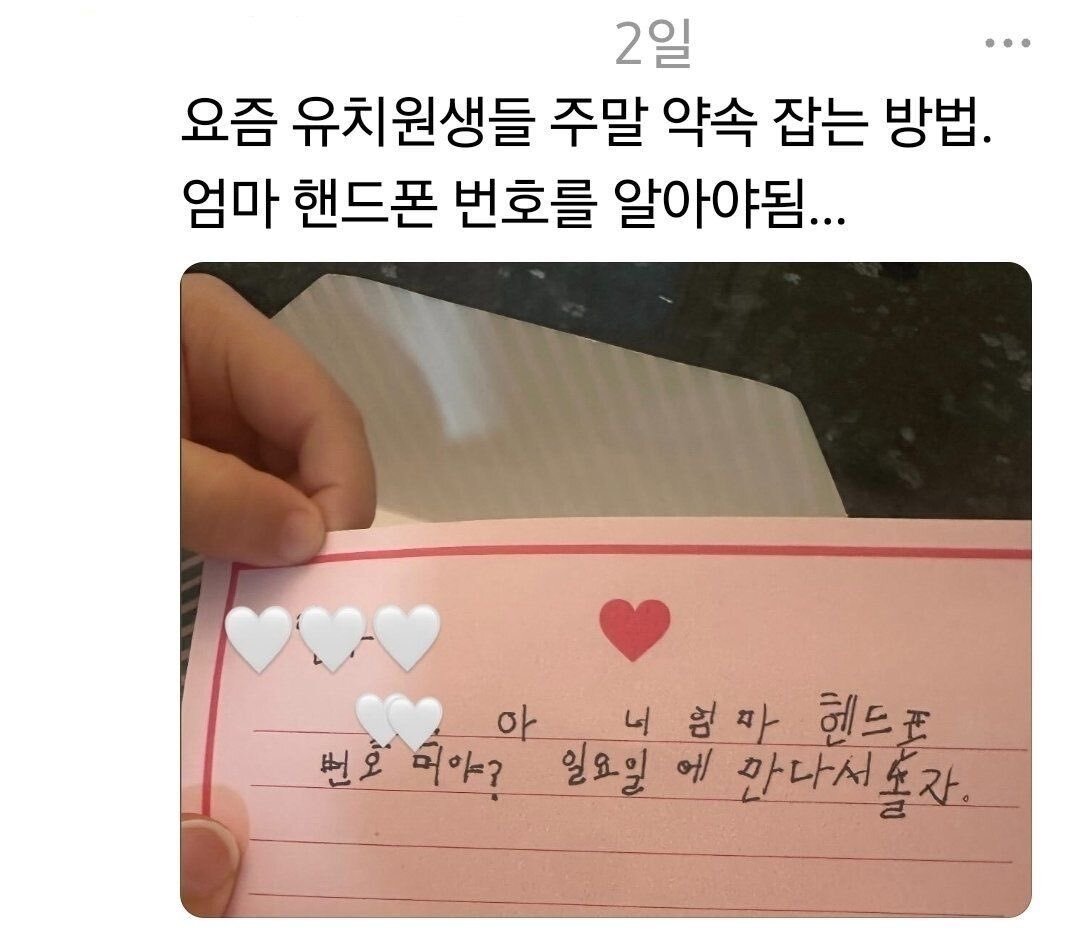 2일
요즘 유치원생들 주말 약속 잡는 방법.
엄마 핸드폰 번호를 알아야됨...
아 너 엄마 헨드폰
번호 머야? 일요일에 만나서 놀자.